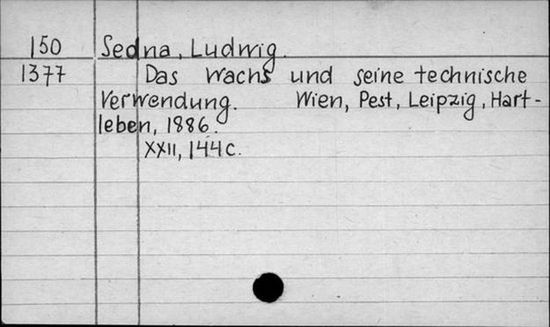 150 Sedna, Ludwig.
1377 Das Wachs und seine technische
Verwendung. Wien, Pest, Leipzig, Hart-
leben, 1886.
XXII, 144c.